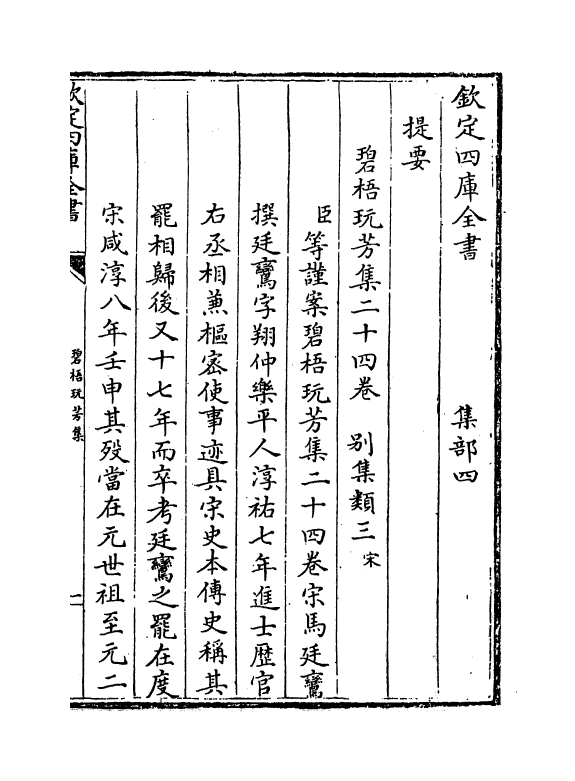 欽定四庫全書　集部四
提要
碧梧玩芳集二十四卷　別集類三宋
臣等謹案碧梧玩芳集二十四卷宋馬廷鸞
撰廷鸞字翔仲樂平人淳祐七年進士歴官
右丞相兼樞宻使事迹具宋史本傳史稱其
罷相歸後又十七年而卒考廷鸞之罷在度
宋咸淳八年壬申其殁當在元世祖至元二
欽定四庫全書
碧梧玩芳集